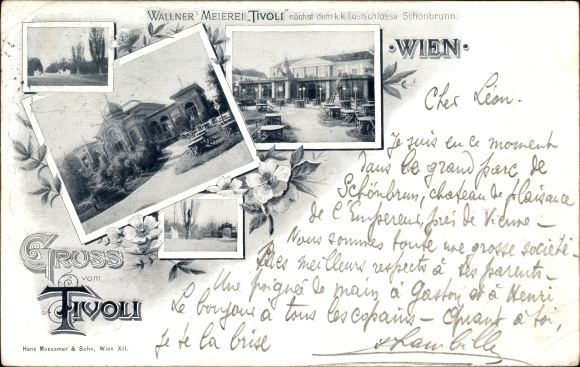 WALLNER'S MEIEREI "TIVOLI" nächst dem k.k. Lustschlosse Schönbrunn.
·WIEN·
Cher Léon.
Je suis en ce moment
dans le grand parc de
Schönbrun, chateau de plaisance
de l'Empereur, près de Vienne –
Nous sommes toute une grosse société –
Mes meilleurs respects à tes parents –
Une poignée de main à Gaston et à Henri
Le bonjour à tous les copains – Quant à toi,
je te la brise
GRUSS
vom
TIVOLI
Hans Muessmer & Sohn, Wien XII.